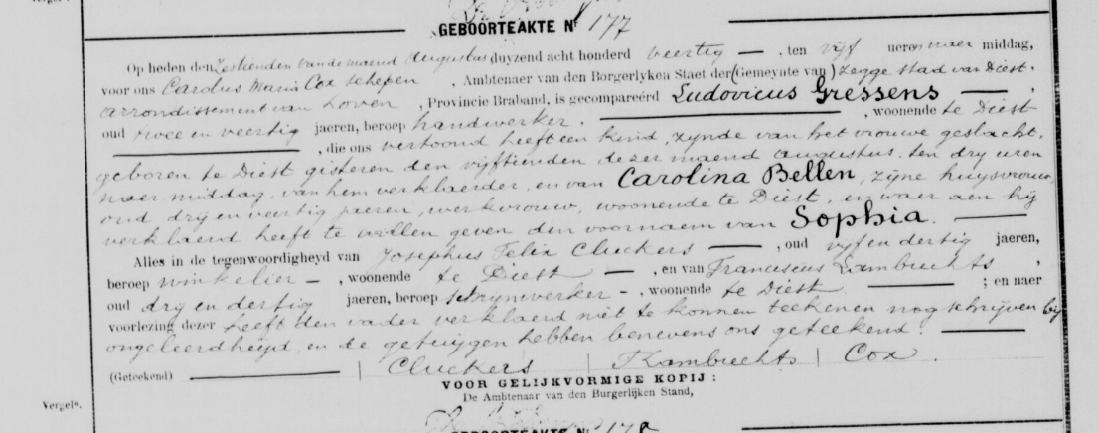 GEBOORTEAKTE Nr 177
Op heden den zestienden van de maend Augustus duyzend acht honderd veertig — , ten vijf ueren naer middag,
voor ons Carolus Maria Cox schepen , Ambtenaer van den Borgerlyken Staet der (Gemeynte van) zegge stad van Diest.
arrondissement van Loven , Provincie Braband, is gecompareérd Ludovicus Gressens — ,
oud twee en veertig jaeren, beroep handwerker. — , woonende te Diest
— , die ons vertoond heeft een kind, zynde van het vrouwe geslacht,
geboren te Diest gisteren den vijftienden dezer maend augustus, ten dry uren
naer middag, van hem verklaerder, en van Carolina Bellen, zijne huysvrouw,
oud dry en veertig jaeren, werkvrouw, woonende te Diest, en waer aen hij
verklaerd heeft te willen geven den voornaem van Sophia. —
Alles in de tegenwoordigheyd van Josephus Felix Cluckers — , oud vijf en dertig jaeren,
beroep winkelier — , woonende te Diest — , en van Franciscus Lambrechts ,
oud dry en dertig jaeren, beroep schrynwerker - , woonende te Diest — ; en naer
voorlezing dezer heeft den vader verklaerd niet te konnen teekenen nog schrijven by
ongeleerdheijd, en de getuijgen hebben benevens ons geteekend. —
(Geteekend) — | Cluckers | F Lambrechts | Cox.
VOOR GELIJKVORMIGE KOPIJ :
De Ambtenaar van den Burgerlijken Stand,
Vergeln.
GEBOORTEAKTE Nr 178